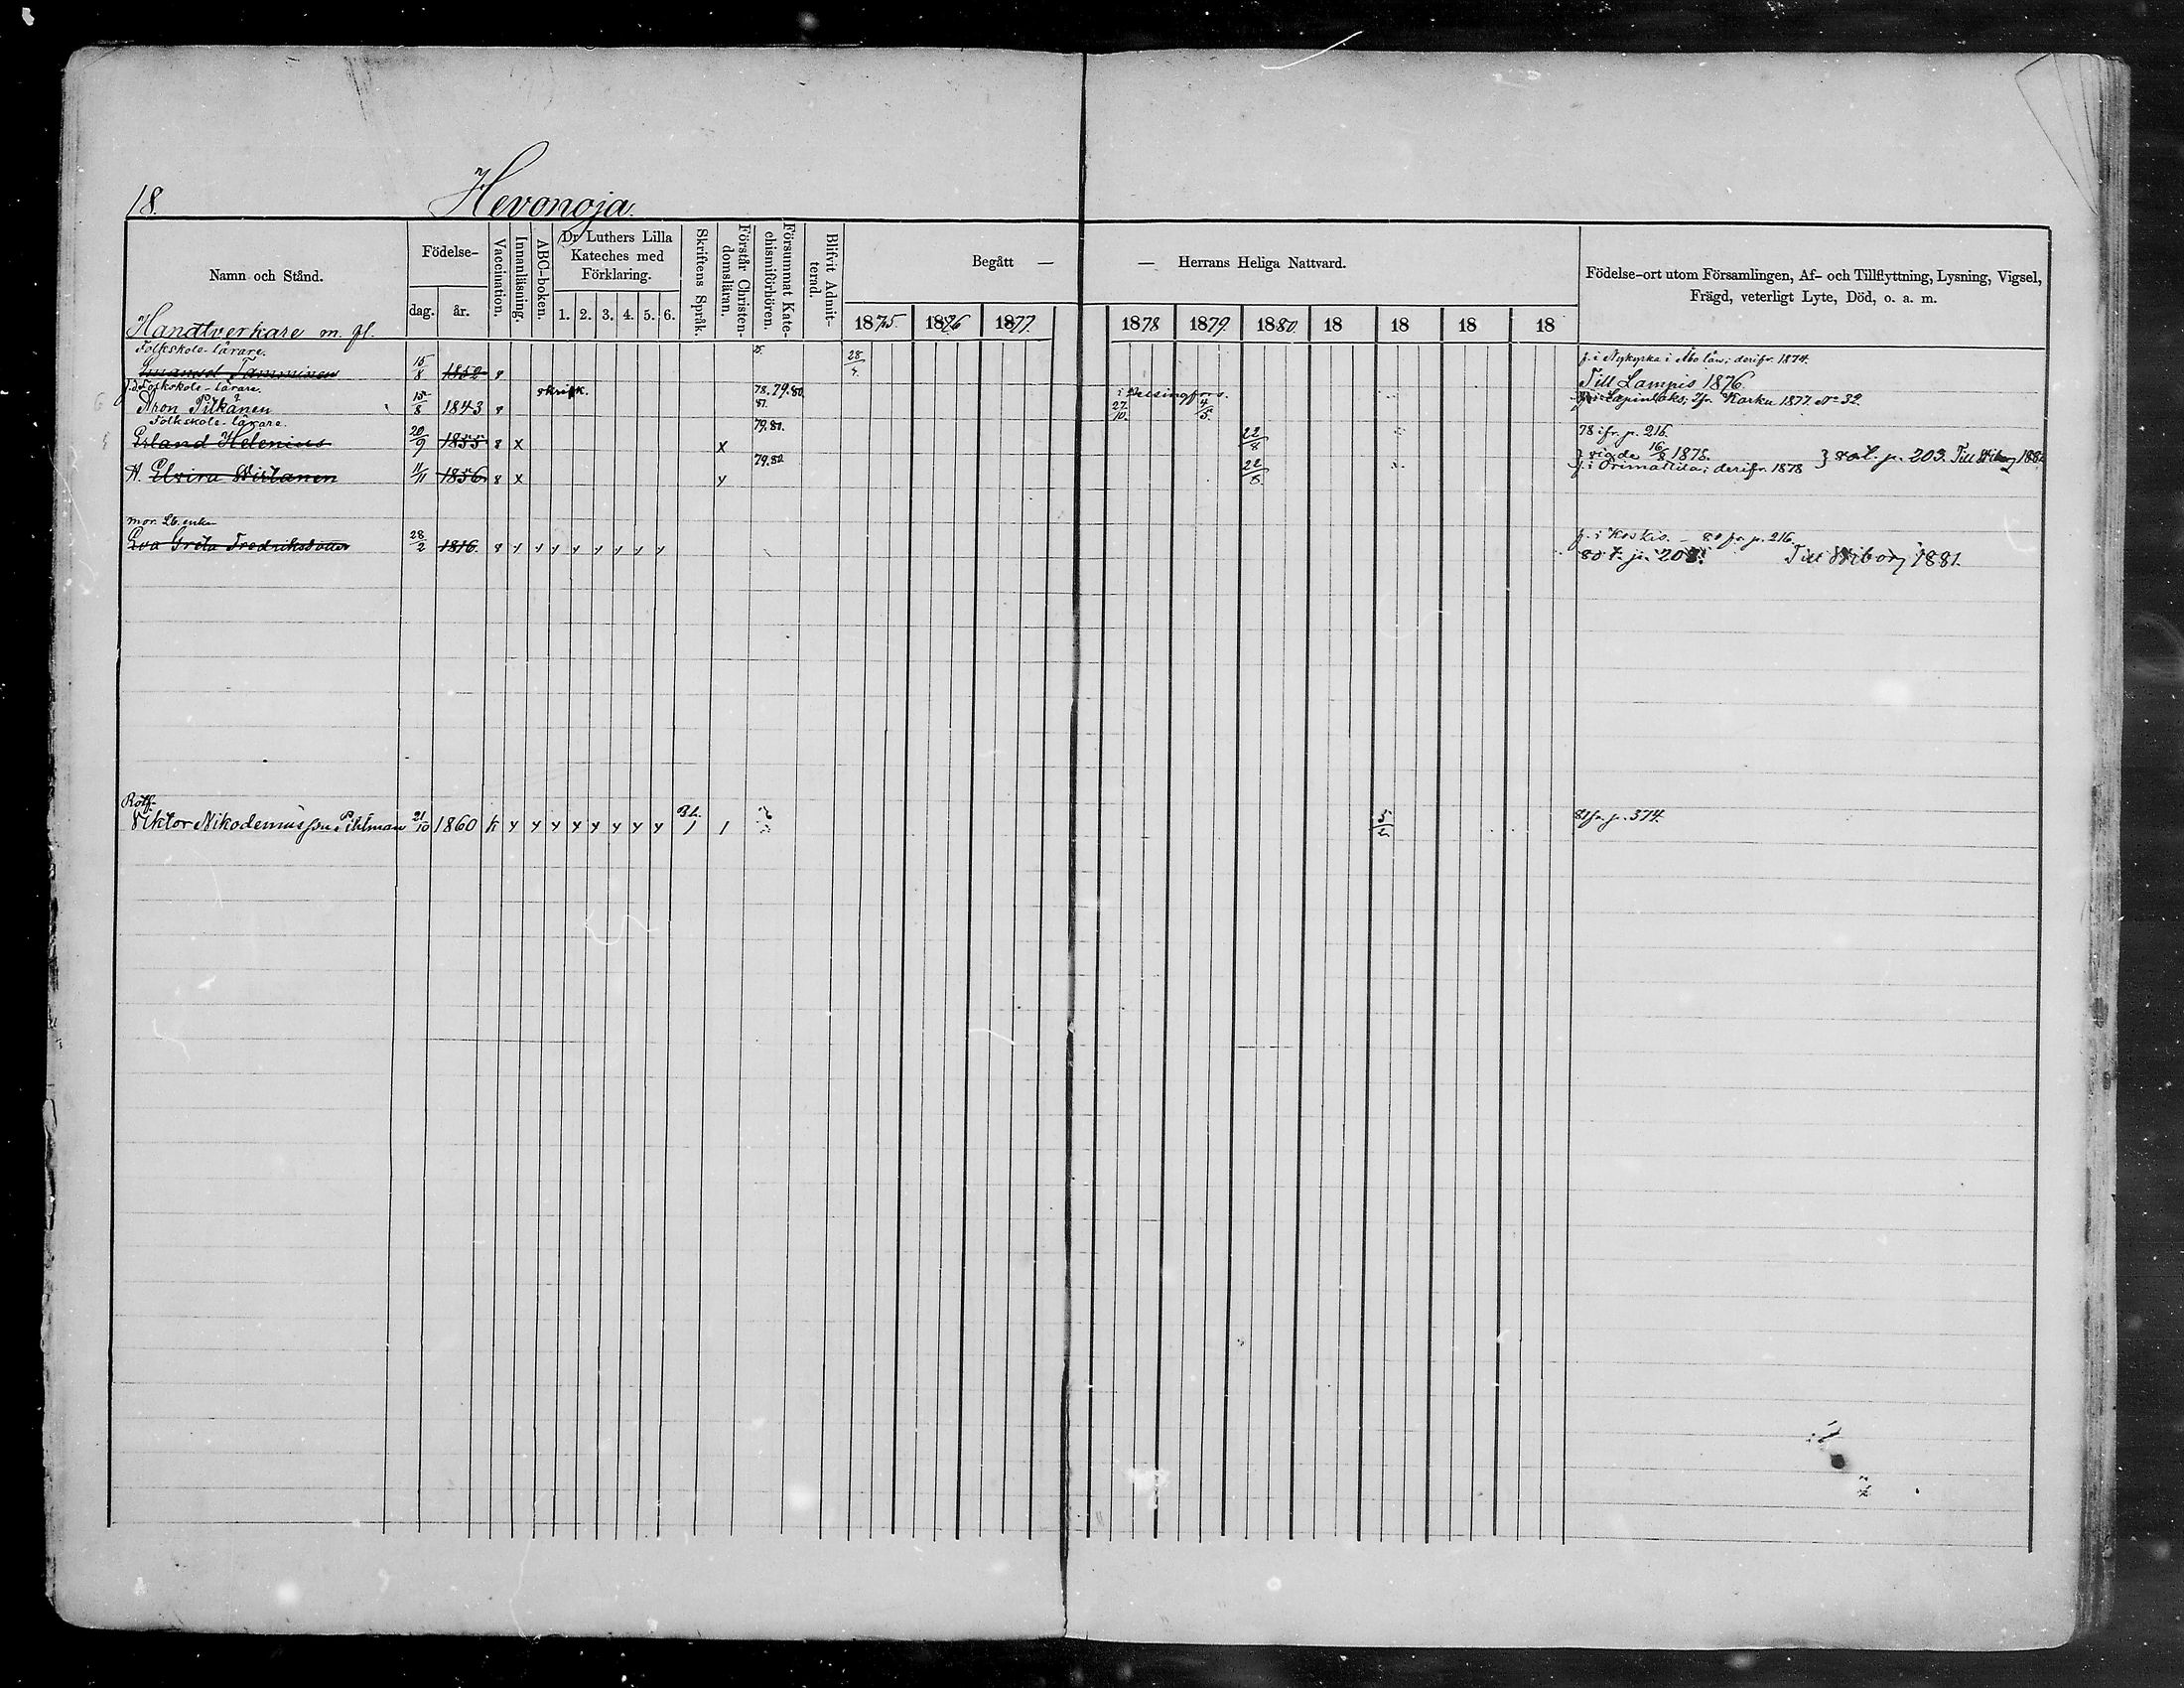 18.
Hevonoja.
Namn och Stånd.
Födelse-
dag.
år.
Vaccination.
Innanläsning.
ABC-boken.
Dr Luthers Lilla Kateches med Förklaring.
1. 2. 3. 4. 5. 6.
Skriftens Språk.
Förstår Christendomsläran.
Försummat Katechismiförhören.
Blifvit Admitterad.
Begått — — Herrans Heliga Nattvard.
1875. 1876 1877 1878 1879. 1880. 18 18 18 18
Födelse-ort utom Församlingen, Af- och Tillflyttning, Lysning, Vigsel,
Frägd, veterligt Lyte, Död, o. a. m.
Handtverkare m. fl.
Folkskole-lärare.
Emanuel Tamminen 15/8 1852 28/4. f. i Nykyrka i Åbo län; derifr. 1874.
Till Lampis 1876.
Folkskole-lärare. skriftk. 78.79.80. i Helsingfors.
Aron Pitkänen 15/8 1843 81. 27/10. 4/5. Lapinlaks; Karku 1877 No 32.
Folkskole-lärare. 79.81. 78 ifr. p. 216.
Erland Helenius 20/9 1855 x x 22/8 vigde 16/8 1878. } 80 t. p. 203. Till Wiborg 1881
H. Elvira Wirtanen 11/11 1856 x 79.80 22/8. f. i Orimattila; derifr. 1878
mor. Lb. enka
Eva Greta Fredriksdotter 28/2 1816. f. i Koskis. – 80 fr. p. 216.
80 t. p. 203. Till Wiborg 1881.
Rotf.
Viktor Nikodemusson Pihlman 21/10 1860 81 fr. p. 374.